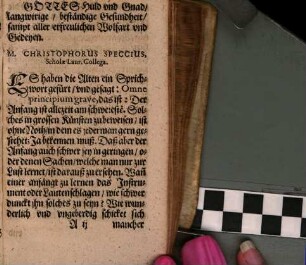 GOTTES Huld und Gnad/
langwirige / beständige Gesundheit/
sampt aller erfreulichen Wolfart und
Gedeyen.
M. CHRISTOPHORUS SPECCIUS,
Scholæ Laur. Collega.
ES haben die Alten ein Sprich-
wort gefürt/ und gesagt: Omne
principium grave, das ist: Der
Anfang ist allezeit am schwersten. Sol-
ches in grossen Künsten zu beweisen / ist
ohne Noth/ in dem es jederman gern ge-
stehet: Ja bekennen muß. Daß aber der
Anfang auch schwer sey in geringen / o-
der denen Sachen/ welche man nur zur
Lust lernet/ ist darauß zu ersehen. Wañ
einer anfängt zu lernen das Instru-
ment oder Lautenschlagen / wie schwer
dunckt ihn solches zu seyn? Wie wun-
derlich und ungeberdig schicket sich
A ij mancher